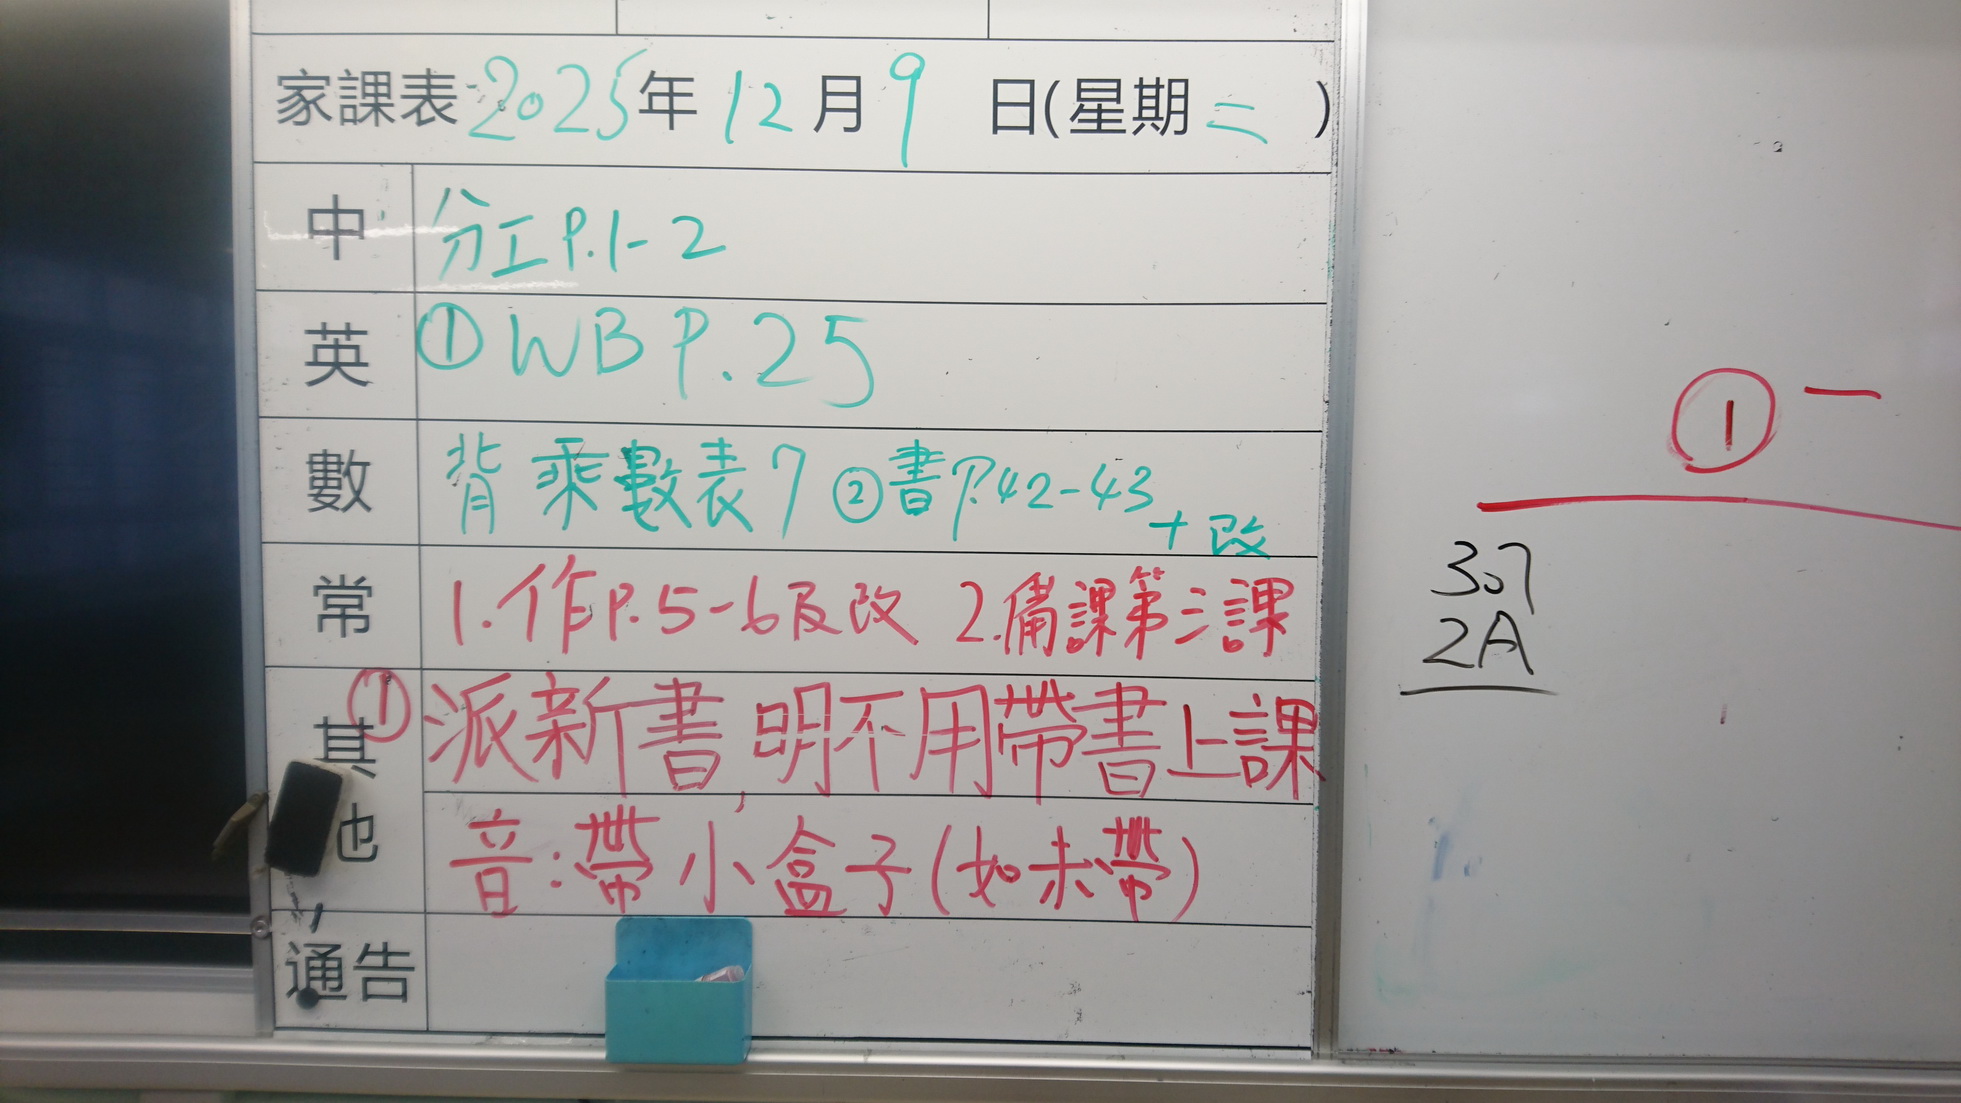 家課表 2025 年 12 月 9 日(星期 二 )
中 分工P.1-2
英 ① WB P.25
數 背乘數表7 ②書P.42-43
+改
常 1.作P.5-6及改 2.備課第三課
其他 ① 派新書,明不用帶書上課
音:帶小盒子(如未帶)
通告
① 一
307
2A